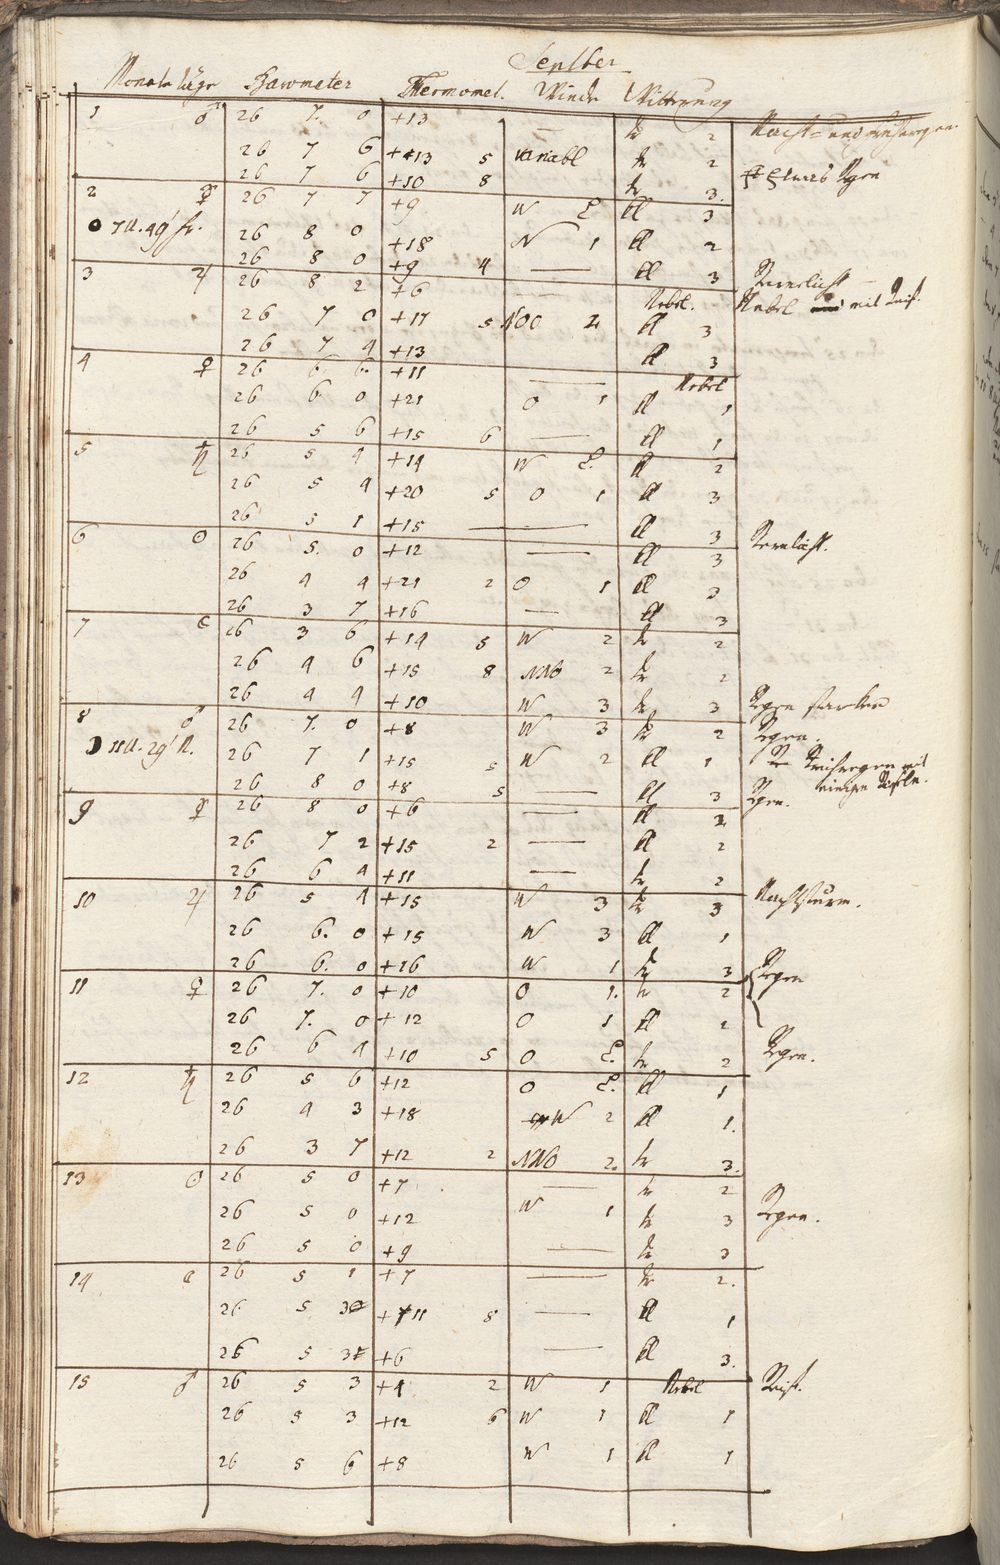 Septber
Monatstäge Barometer Thermomet. Winde Witterung
1 ♂ 26 7. 0 +13 — tr 2 Nacht= und
26 7 6 +13 5 variabl tr 2
26 7 6 +10 8 tr 3. Etwas Regen
2 ☿ 26 7 7 +9 W E. kl 3
7 U. 49' fr. 26 8 0 +18 N 1 kl 2
26 8 0 +9 4 — kl 3
3 ♃ 26 8 2 +6 — Nebel. Nebel mit Reif.
26 7 0 +17 5 NOO 2 kl 3
26 7 4 +13 kl 3
4 ♀ 26 6 6. +11 — Nebel
26 6 0 +21 O 1 kl 1
26 5 6 +15 6 — kl 1
5 ♄ 26 5 4 +14 W E. kl 2
26 5 4 +20 5 O 1 kl 3
26 5 1 +15 — kl 3
6 ☉ 26 5. 0 +12 — kl 3
26 4 4 +21 2 O 1 kl 3
26 3 7 +16 — kl 3
7 ☾ 26 3 6 +14 5 W 2 tr 2
26 4 6 +15 8 NNO 2 tr 2
26 4 4 +10 W 3 tr 3 Regen
8 ♂ 26 7. 0 +8 W 3 tr 2 Regen.
11 U. 29' N. 26 7 1 +15 5 W 2 kl 1
26 8 0 +8 5 — kl 3 Regen.
9 ☿ 26 8 0 +6 — kl 2
26 7 2 +15 2 — kl 2
26 6 4 +11 — tr 2
10 ♃ 26 5 4 +15 W 3 tr 3 Nachtsturm.
26 6. 0 +15 W 3 kl 1
26 6. 0 +16 W 1 tr 3 Regen
11 ♀ 26 7. 0 +10 O 1. tr 2
26 7. 0 +12 O 1 kl 2
26 6 4 +10 5 O E. tr 2 Regen.
12 ♄ 26 5 6 +12 O E. kl 1
26 4 3 +18 W 2 kl 1.
26 3 7 +12 2 NNO 2. tr 3.
13 ☉ 26 5 0 +7 — tr 2
26 5 0 +12 W 1 tr 3 Regen.
26 5 0 +9 — tr 3
14 ☾ 26 5 1 +7 — tr 2.
26 5 3 +11 8 — kl 1
26 5 3 +6 — kl 3.
15 ♂ 26 5 3 +4 2 W 1 Nebel Reif.
26 5 3 +12 6 W 1 kl 1
26 5 6 +8 W 1 kl 1